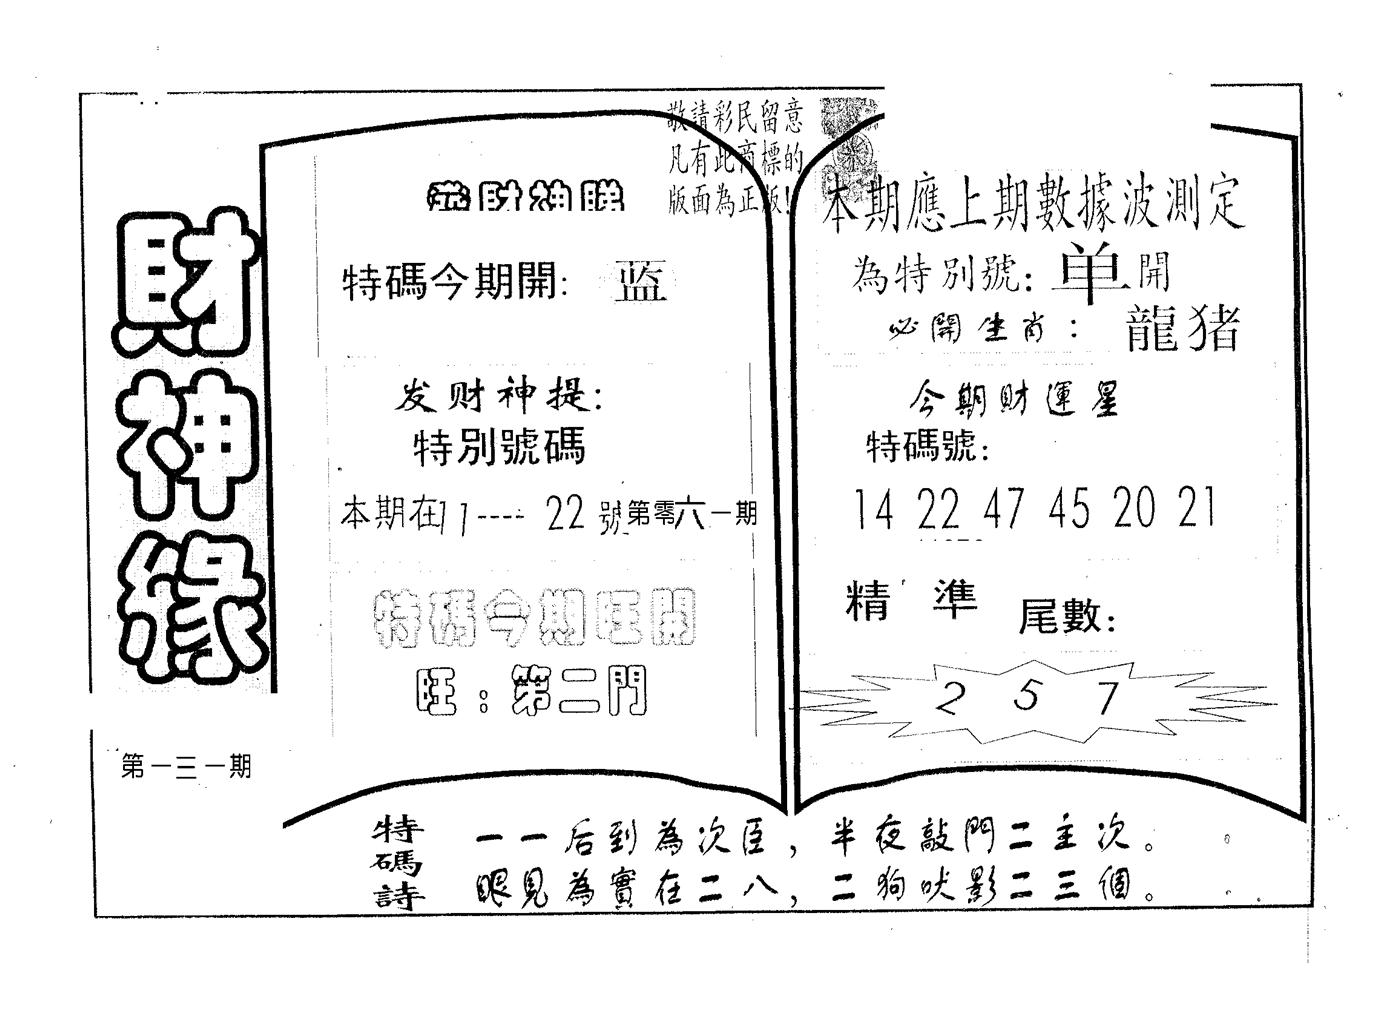 財神緣
第一三一期
敬請彩民留意
凡有此商標的
版面為正版!
特碼今期開: 蓝
发财神提:
特別號碼
本期在11---- 22號第零六一期
特碼今期旺開
旺:第二門
本期應上期數據波測定
為特別號: 单開
必開生肖: 龍猪
今期財運星
特碼號:
14 22 47 45 20 21
精 準 尾數:
2 5 7
特碼詩
一一后到為次臣,半夜敲門二主次。
眼見為實在二八,二狗吠影二三個。